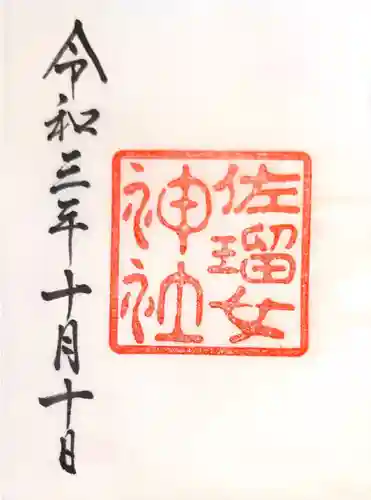 佐瑠女
神社
令和三年十月十日